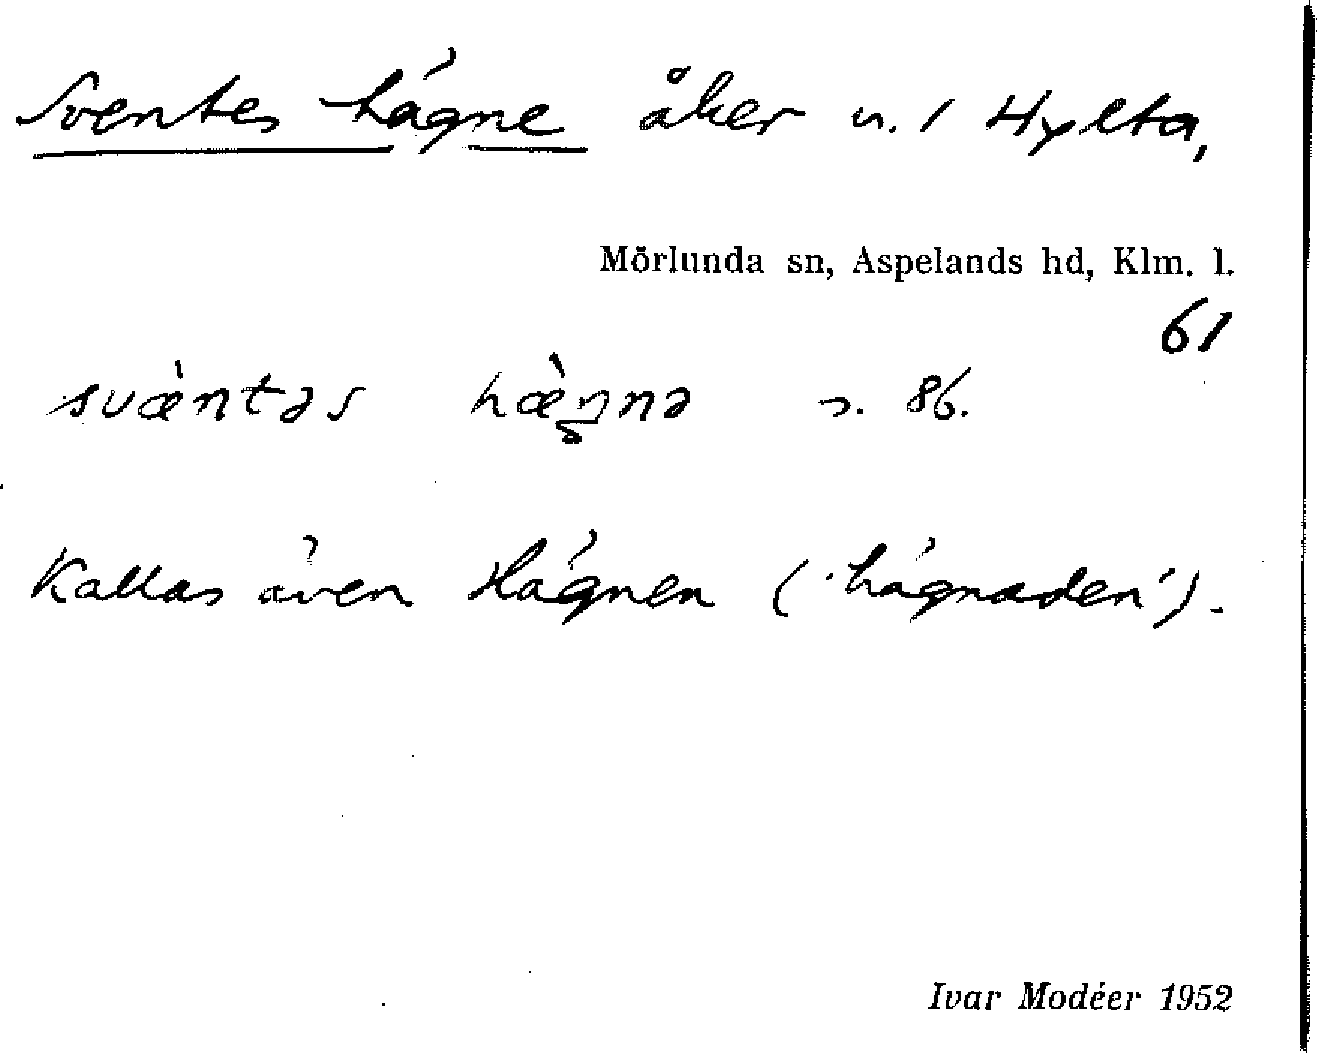 Sventes hägne åker u. 1 Hylta,
Mörlunda sn, Aspelands hd, Klm. l.
61
svæ̀ntəs hæ̀ŋnə s. 86.
Kallas även Hägnen ('hägnaden').
Ivar Modéer 1952